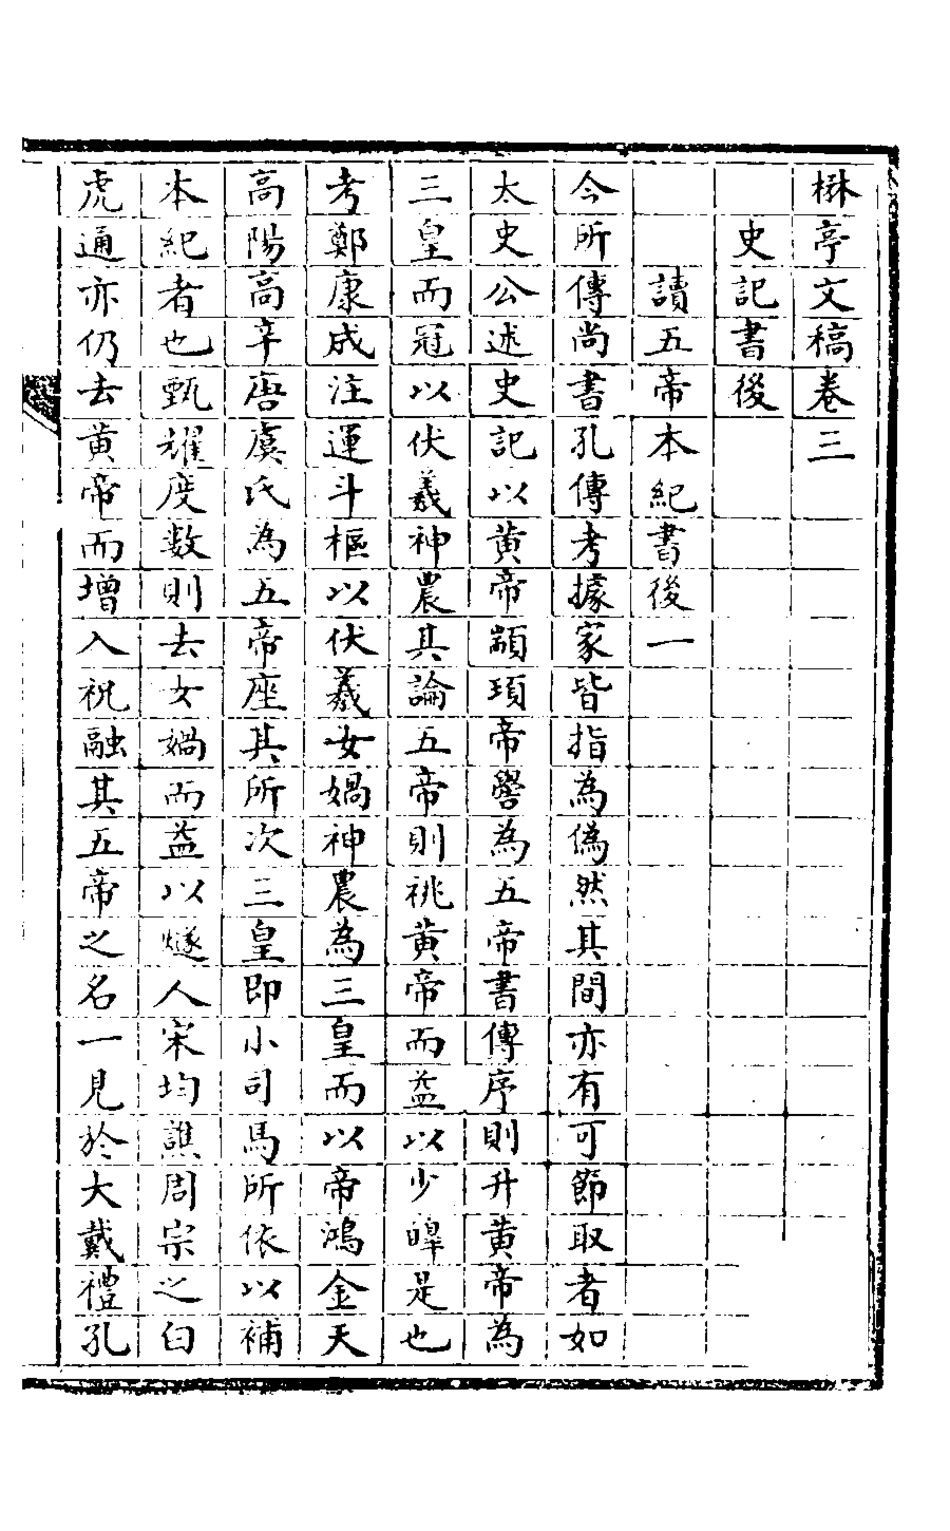 楙亭文稿卷三
史記書後
讀五帝本紀書後一
今所傳尚書孔傳考據家皆指為偽然其間亦有可節取者如
太史公述史記以黄帝顓頊帝嚳為五帝書傳序則升黄帝為
三皇而冠以伏羲神農其論五帝則祧黄帝而益以少皞是也
考鄭康成注運斗樞以伏羲女媧神農為三皇而以帝鴻金天
高陽高辛唐虞氏為五帝座其所次三皇即小司馬所依以補
本紀者也甄耀度数則去女媧而益以燧人宋均譙周宗之白
虎通亦仍去黄帝而增入祝融其五帝之名一見於大戴禮孔